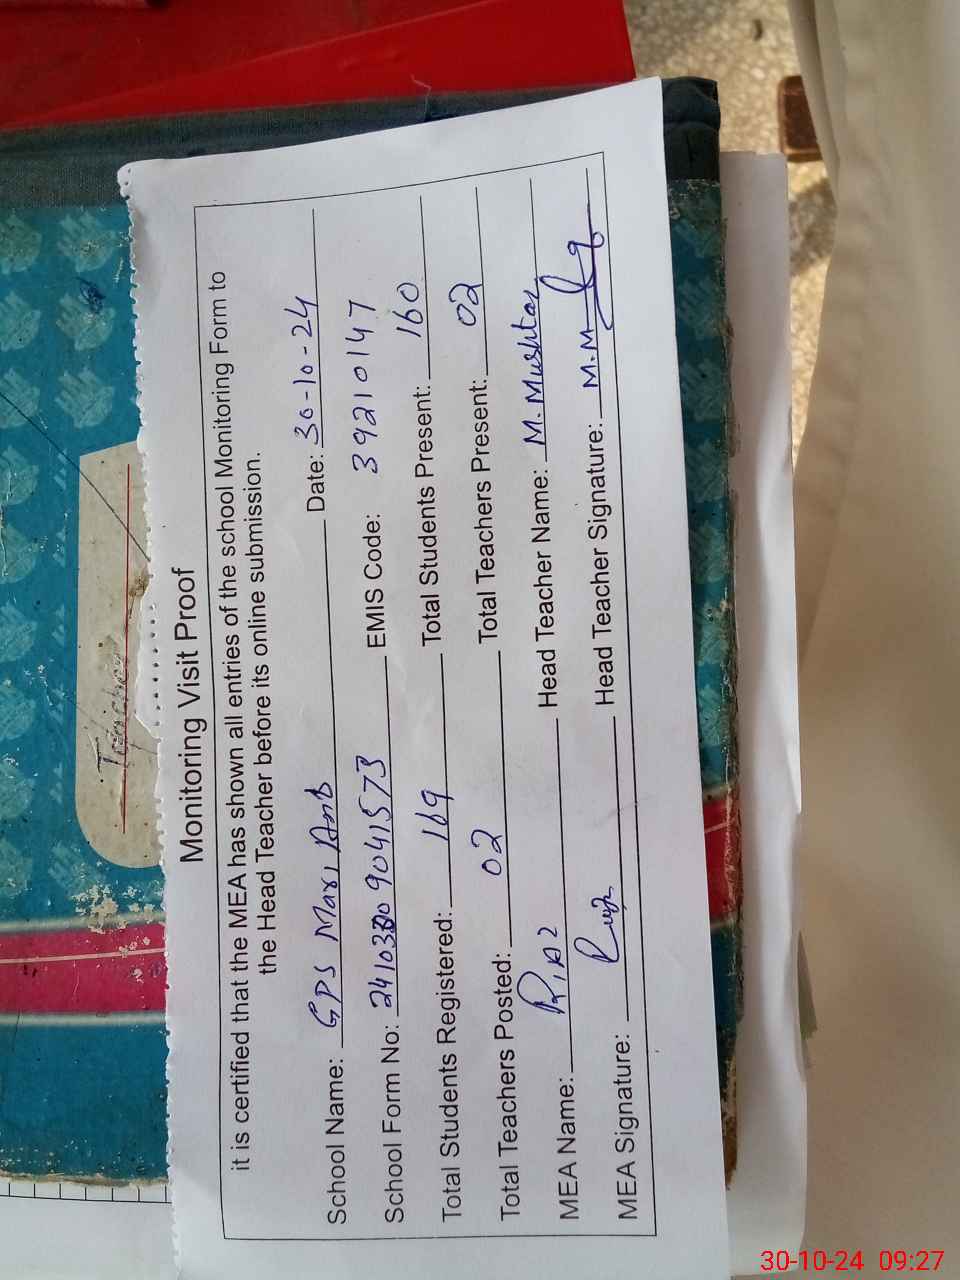 Monitoring Visit Proof
it is certified that the MEA has shown all entries of the school Monitoring Form to
the Head Teacher before its online submission.
School Name: GPS Mari Anb Date: 30-10-24
School Form No: EMIS Code: 39210147
Total Students Registered: 169 Total Students Present: 160
Total Teachers Posted: 02 Total Teachers Present: 02
MEA Name: Riaz Head Teacher Name: M. Mushtaq
MEA Signature: Head Teacher Signature: M.M
Teacher
30-10-24 09:27